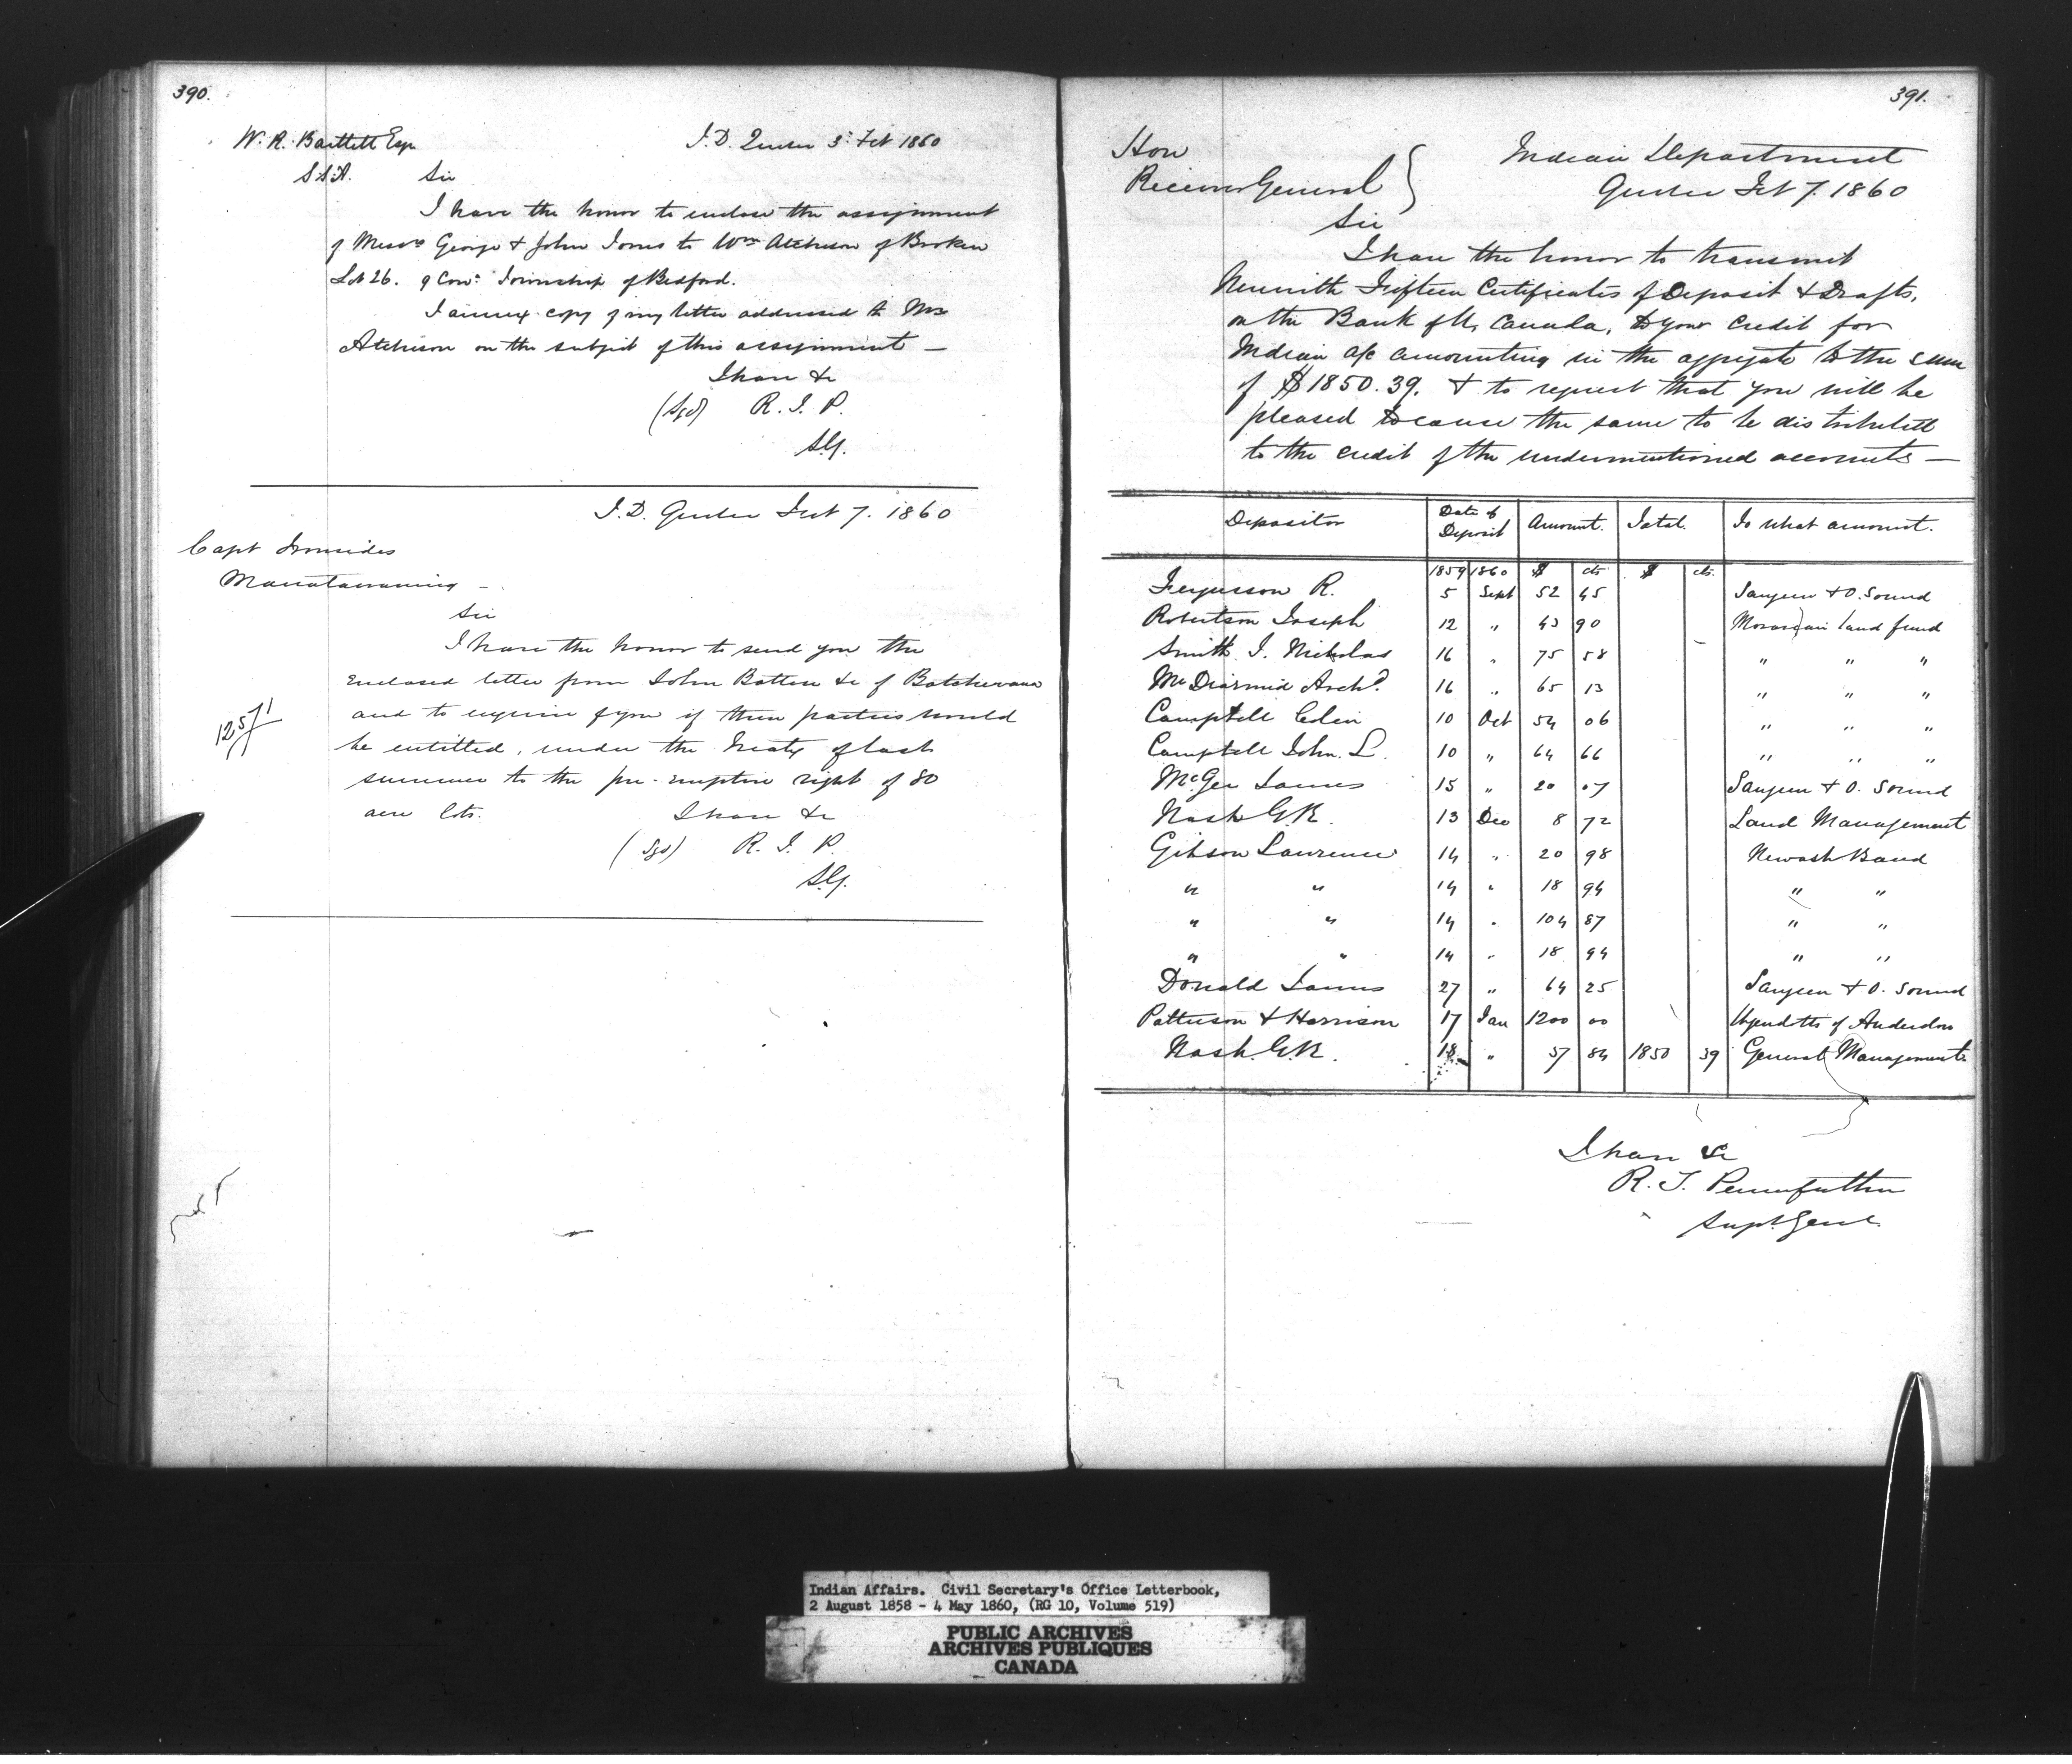 390.
W. R. Bartlett Esqr
I. D. Quebec 3d Feb 1860
S.S.A. Sir
I have the honor to enclose the assignment
of Messrs George & John Jones to Wm Atcheson of Broken
Lot 26. 9 Con: Township of Bedford.
I annex copy of my letter addressed to Mr
Atcheson on the subject of this assignment —
I have &c
(Sgd) R. T. P.
S.G.
I. D. Quebec Feb 7. 1860
Capt Ironsides
Manatawaning —
Sir
I have the honor to send you the
enclosed letter from John Botten &c of Batchewana
and to enquire of you if these parties would
be entitled, under the Treaty of last
summer to the pre-emption right of 80
acre lots. I have &c
(Sgd) R. T. P.
S.G.
391.
Hon
Receiver General
Indian Department
Quebec Feb 7. 1860
Sir
I have the honor to transmit
herewith Fifteen Certificates of Deposit & Drafts,
on the Bank of U. Canada, to your credit for
Indian a/c amounting in the aggregate to the sum
of $1850.39. & to request that you will be
pleased to cause the same to be distributed
to the credit of the undermentioned accounts —
Depositor Date of Deposit Amount. Total. To what amount.
1859 1860 $ cts $ cts.
Fergusson R. 5 Sept 52 45 Saugeen & O. Sound
Robertson Joseph 12 " 43 90 Moravian land fund
Smith J. Nicholas 16 " 75 58 " " "
McDiarmid Archd. 16 " 65 13 " " "
Campbell Colin 10 Oct 54 06 " " "
Campbell John. L. 10 " 64 66 " " "
McGee James 15 " 20 07 Saugeen & O. Sound
Nash G.R. 13 Dec 8 72 Land Management
Gibson Lawrence 14 " 20 98 Newash Band
" " 14 " 18 94 " "
" " 14 " 104 87 " "
" " 14 " 18 94 " "
Donald James 27 " 64 25 Saugeen & O. Sound
Patterson & Harrison 17 Jan 1200 00 Wyandotts of Anderdon
Nash. G.R. 18 " 37 84 1850 39 General Management
I have &c
R. T. Pennefather
Supt Genl.
Indian Affairs. Civil Secretary's Office Letterbook,
2 August 1858 - 4 May 1860, (RG 10, Volume 519)
PUBLIC ARCHIVES
ARCHIVES PUBLIQUES
CANADA